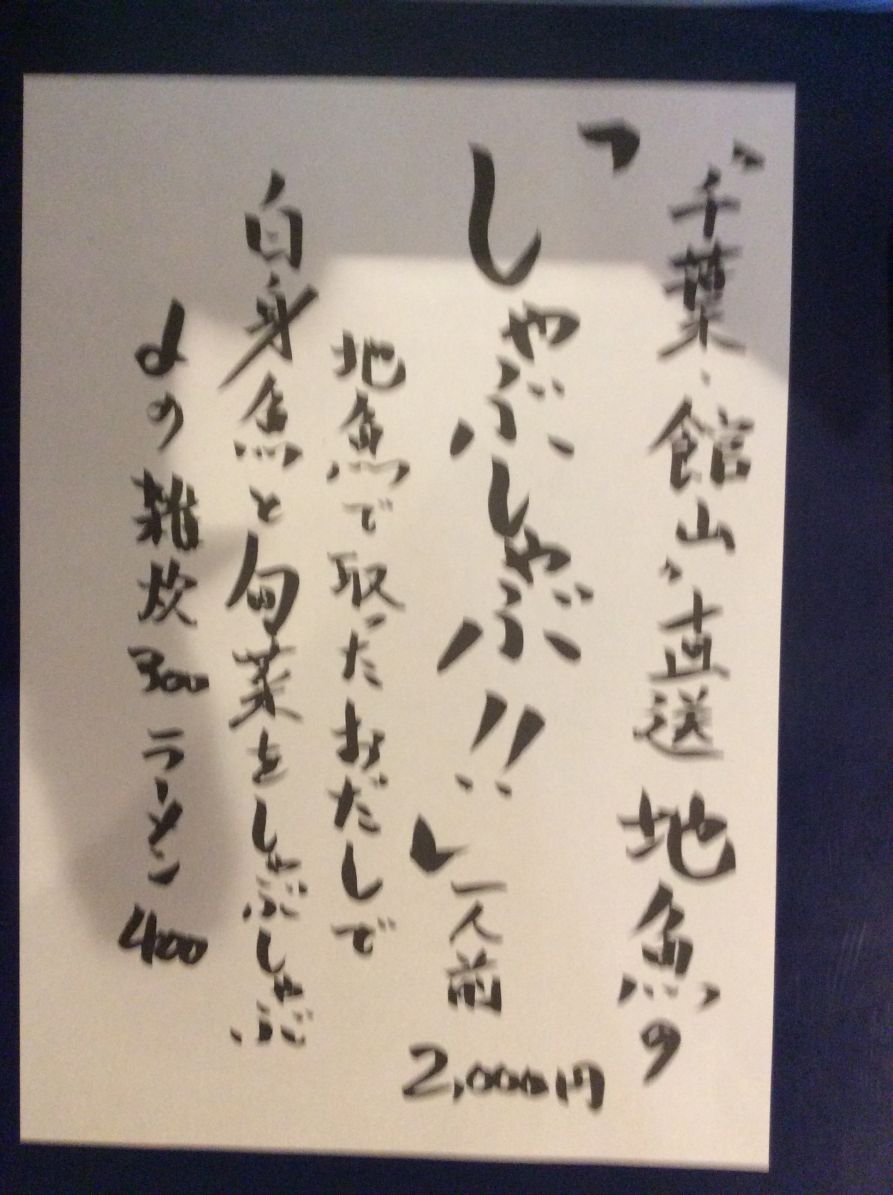 "千葉、館山"直送 地魚の
「しゃぶしゃぶ!!」一人前 2,000円
地魚で取ったおだしで
白身魚と旬菜をしゃぶしゃぶ
〆の雑炊300 ラーメン400